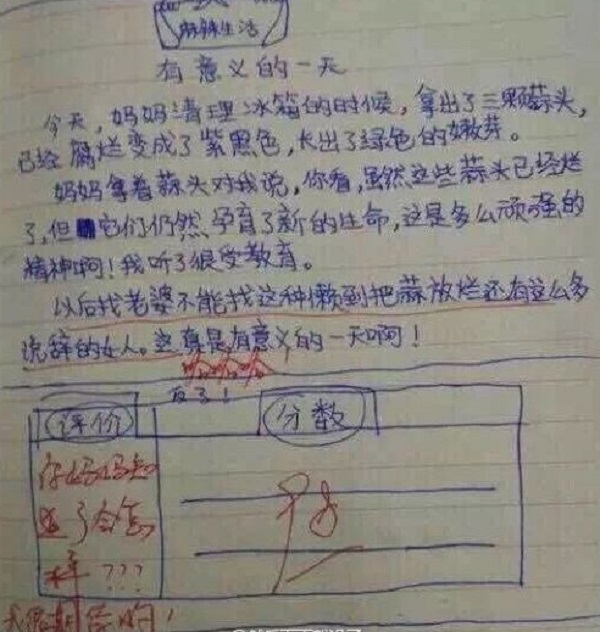 麻辣生活
有意义的一天
今天，妈妈清理冰箱的时候，拿出了三颗蒜头，
已经腐烂变成了紫黑色，长出了绿色的嫩芽。
妈妈拿着蒜头对我说，你看，虽然这些蒜头已经烂
了，但它们仍然孕育了新的生命，这是多么顽强的
精神啊！我听了很受教育。
以后找老婆不能找这种懒到把蒜放烂还有这么多
说辞的女人。这真是有意义的一天啊！
哈哈哈
反了！
评价
分数
你妈妈知
道了会怎
样？？？